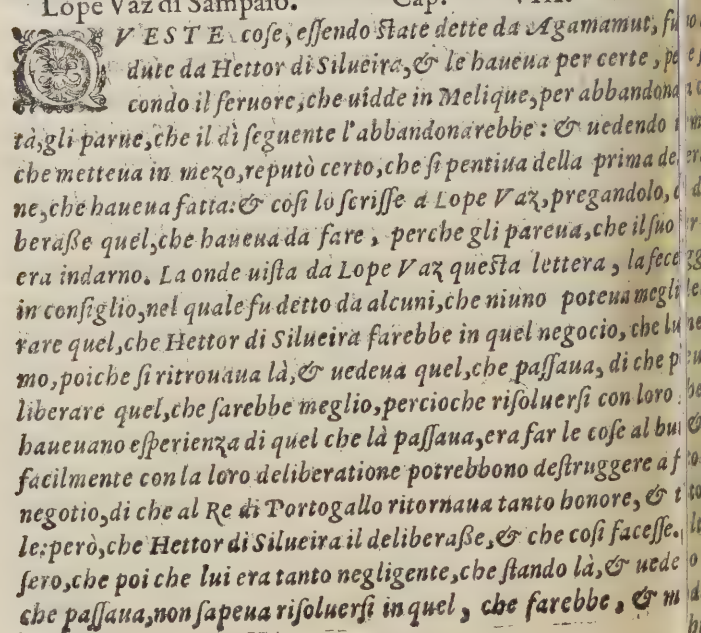 Lope Vaz di Sampaio. Cap.
QVESTE cose, essendo state dette da Agamamut, fu
dute da Hettor di Silueira, & le haueua per certe, pe
condo il feruore, che uidde in Melique, per abbandona
tà, gli parue, che il dì seguente l'abbandonarebbe: & uedendo
che metteua in mezo, reputò certo, che si pentiua della prima de
ne, che haueua fatta: & cosi lo scrisse a Lope Vaz, pregandolo,
beraße quel, che haueua da fare, perche gli pareua, che il suo
era indarno. La onde uista da Lope Vaz questa lettera, la fece
in consiglio, nel quale fu detto da alcuni, che niuno poteua megli
rare quel, che Hettor di Silueira farebbe in quel negocio, che lu
mo, poiche si ritrouaua là, & uedeua quel, che passaua, di che p
liberare quel, che sarebbe meglio, percioche risoluersi con loro
haueuano esperienza di quel che là passaua, era far le cose al bu
facilmente con la loro deliberatione potrebbono destruggere a f
negotio, di che al Re di Portogallo ritornaua tanto honore, & t
le: però, che Hettor di Silueira il deliberaße, & che cosi facesse.
sero, che poi che lui era tanto negligente, che stando là, & uede
che passaua, non sapeua risoluersi in quel, che farebbe, & m